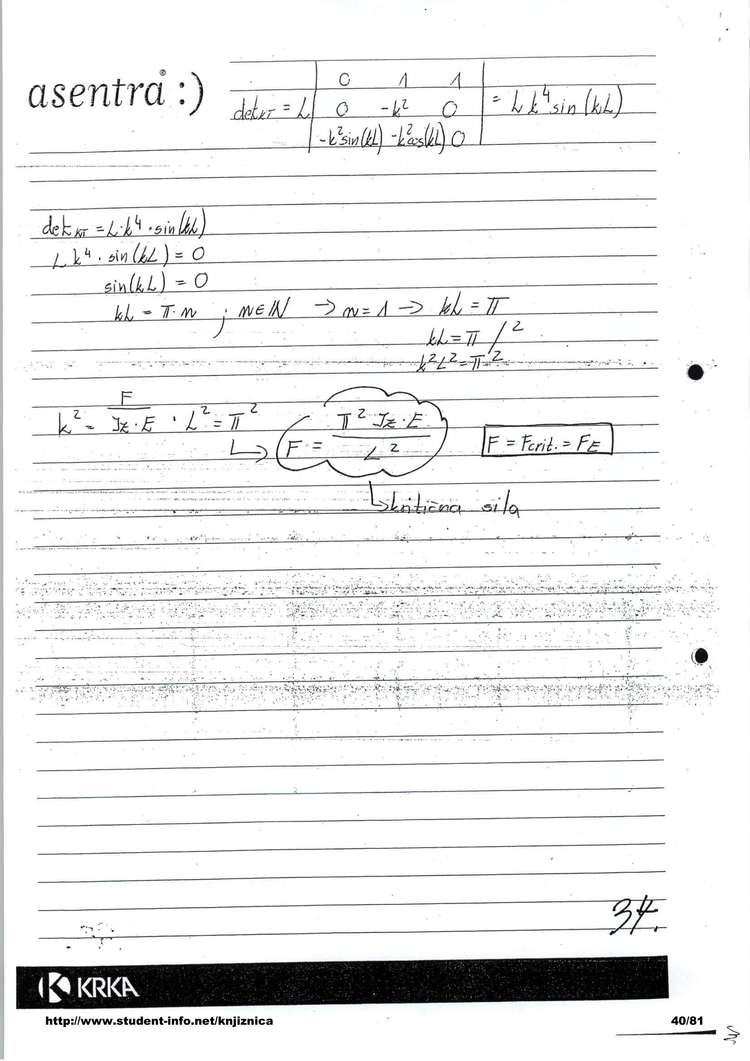 asentra® :)
det_KT = L | 0 1 1 | = L k⁴ sin(kL)
| 0 -k² 0 |
| -k² sin(kL) -k² cos(kL) 0 |
det_KT = L·k⁴·sin(kL)
L k⁴ · sin(kL) = 0
sin(kL) = 0
kL = π·n ; n∈ℕ → n = 1 → kL = π
kL = π /²
k²L² = π²
k² = F / Iz·E · L² = π²
↳ F = π² Iz·E / L²
F = Fcrit. = F_E
↳ kritična sila
34.
KRKA
http://www.student-info.net/knjiznica 40/81